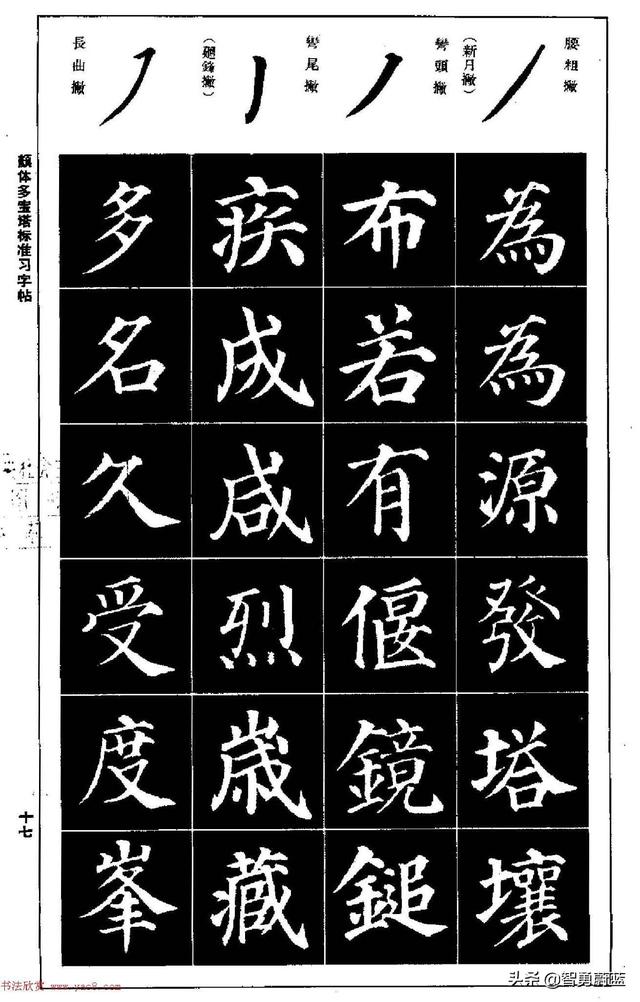 腰粗撇
（新月撇）
彎頭撇
彎尾撇
（廻鋒撇）
長曲撇
為為源發塔壤
布若有偃鏡鎚
疾成咸烈歲藏
多名久受度峯
颜体多宝塔标准习字帖
十七
书法欣赏 www.yac8.com
头条 @智勇蔚蓝